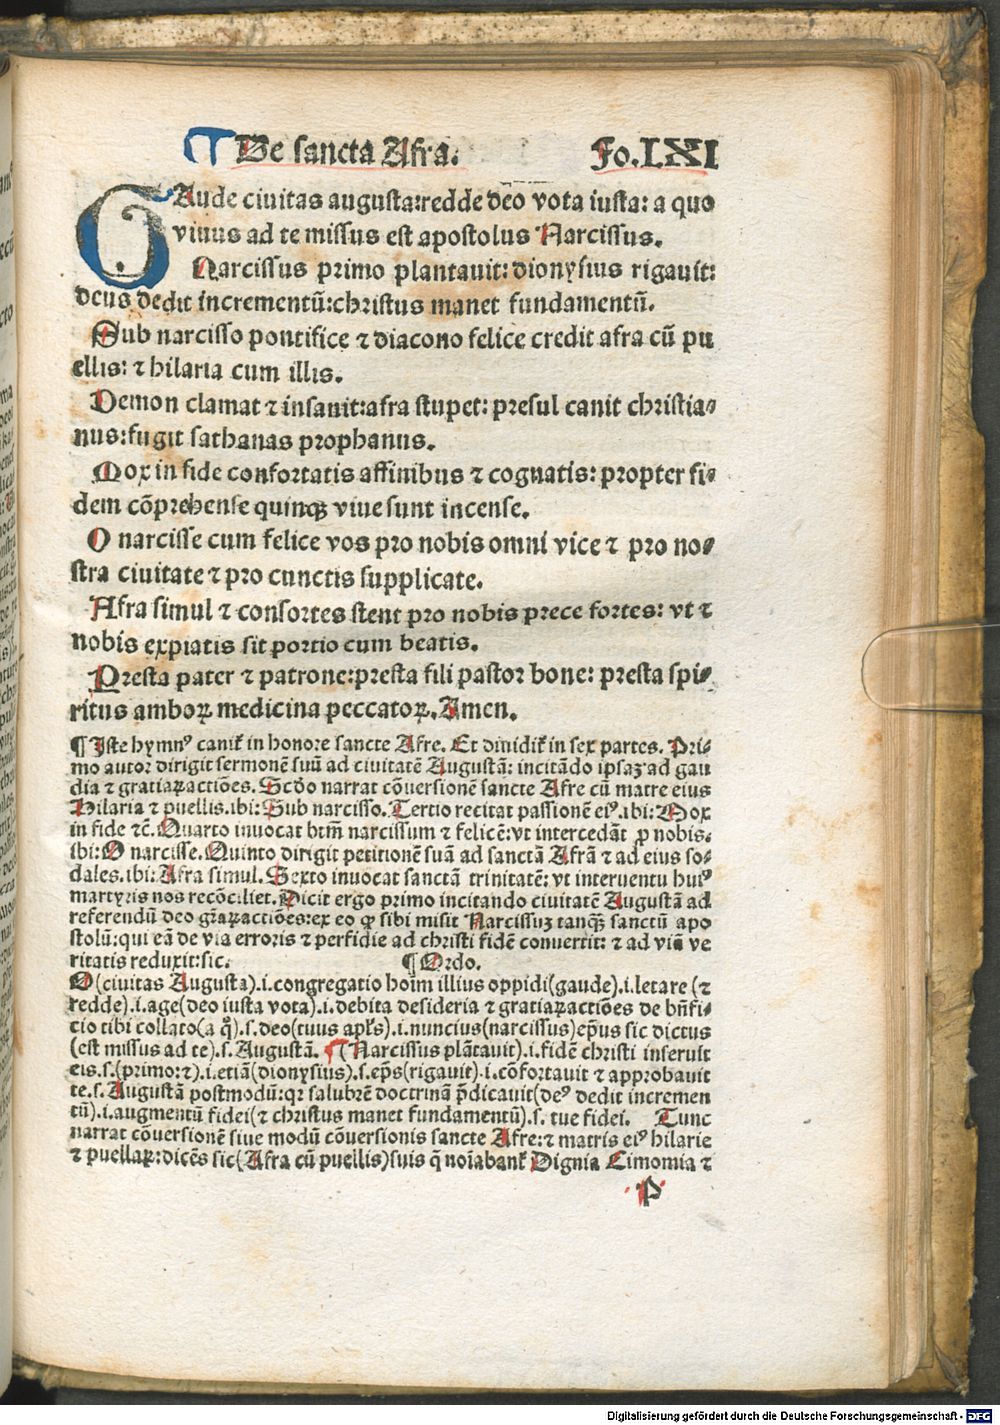 ¶ De sancta Afra. Fo.LXI
GAude ciuitas augusta:redde deo vota iusta: a quo
viuus ad te missus est apostolus Narcissus.
Narcissus primo plantauit: dionysius rigauit:
deus dedit incrementū:christus manet fundamentū.
Sub narcisso pontifice ⁊ diacono felice credit afra cū pu
ellis: ⁊ hilaria cum illis.
Demon clamat ⁊ insanit:afra stupet: presul canit christia⸗
nus:fugit sathanas prophanus.
Mox in fide confortatis affinibus ⁊ cognatis: propter fi⸗
dem cōprehense quinqꝫ viue sunt incense.
O narcisse cum felice vos pro nobis omni vice ⁊ pro no⸗
stra ciuitate ⁊ pro cunctis supplicate.
Afra simul ⁊ consortes stent pro nobis prece fortes: vt ⁊
nobis expiatis sit portio cum beatis.
Presta pater ⁊ patrone:presta fili pastor bone: presta spi⸗
ritus amboꝝ medicina peccatoꝝ. Amen.
¶ Iste hymnꝰ canit᷑ in honore sancte Afre. Et diuidit᷑ in sex partes. Pri⸗
mo autor dirigit sermonē suū ad ciuitatē Augustā: incitādo ipsaꝫ ad gau
dia ⁊ gratiaꝝactiōes. Scd̓o narrat cōuersionē sancte Afre cū matre eius
Hilaria ⁊ puellis.ibi: Sub narcisso. Tertio recitat passionē eiꝰ.ibi: Mox
in fide ⁊c̄. Quarto inuocat btm̄ narcissum ⁊ felicē:vt intercedāt ꝓ nobis.
ibi: O narcisse. Quinto dirigit petitionē suā ad sanctā Afrā ⁊ ad eius so⸗
dales.ibi: Afra simul. Sexto inuocat sanctā trinitatē: vt interuentu huiꝰ
martyris nos recōciliet. Dicit ergo primo incitando ciuitatē Augustā ad
referendū deo gr̄aꝝactiōes:ex eo ꝙ sibi misit Narcissuꝫ tanqꝫ sanctū apo
stolū:qui eā de via erroris ⁊ perfidie ad christi fidē conuertit: ⁊ ad viā ve
ritatis reduxit:sic. ¶ Ordo.
O(ciuitas Augusta).i.congregatio hoīm illius oppidi(gaude).i.letare (⁊
redde).i.age(deo iusta vota).i.debita desideria ⁊ gratiaꝝactiōes de bn̄fi⸗
cio tibi collato(a q̊).s.deo(tuus apl̓s).i.nuncius(narcissus)ep̄us sic dictus
(est missus ad te).s.Augustā. ¶ (Narcissus plātauit).i.fidē christi inseruit
eis.s.(primo:⁊).i.etiā(dionysius).s.ep̄s(rigauit).i.cōfortauit ⁊ approbauit
te.s.Augustā postmodū:qꝛ salubrē doctrinā p̄dicauit(deꝰ dedit incremen
tū).i.augmentū fidei(⁊ christus manet fundamentū).s. tue fidei. Tunc
narrat cōuersionē siue modū cōuersionis sancte Afre:⁊ matris eiꝰ hilarie
⁊ puellaꝝ:dicēs sic(Afra cū puellis)suis q̄ noīabant᷑ Dignia Eimomia ⁊
P
Digitalisierung gefördert durch die Deutsche Forschungsgemeinschaft - DFG